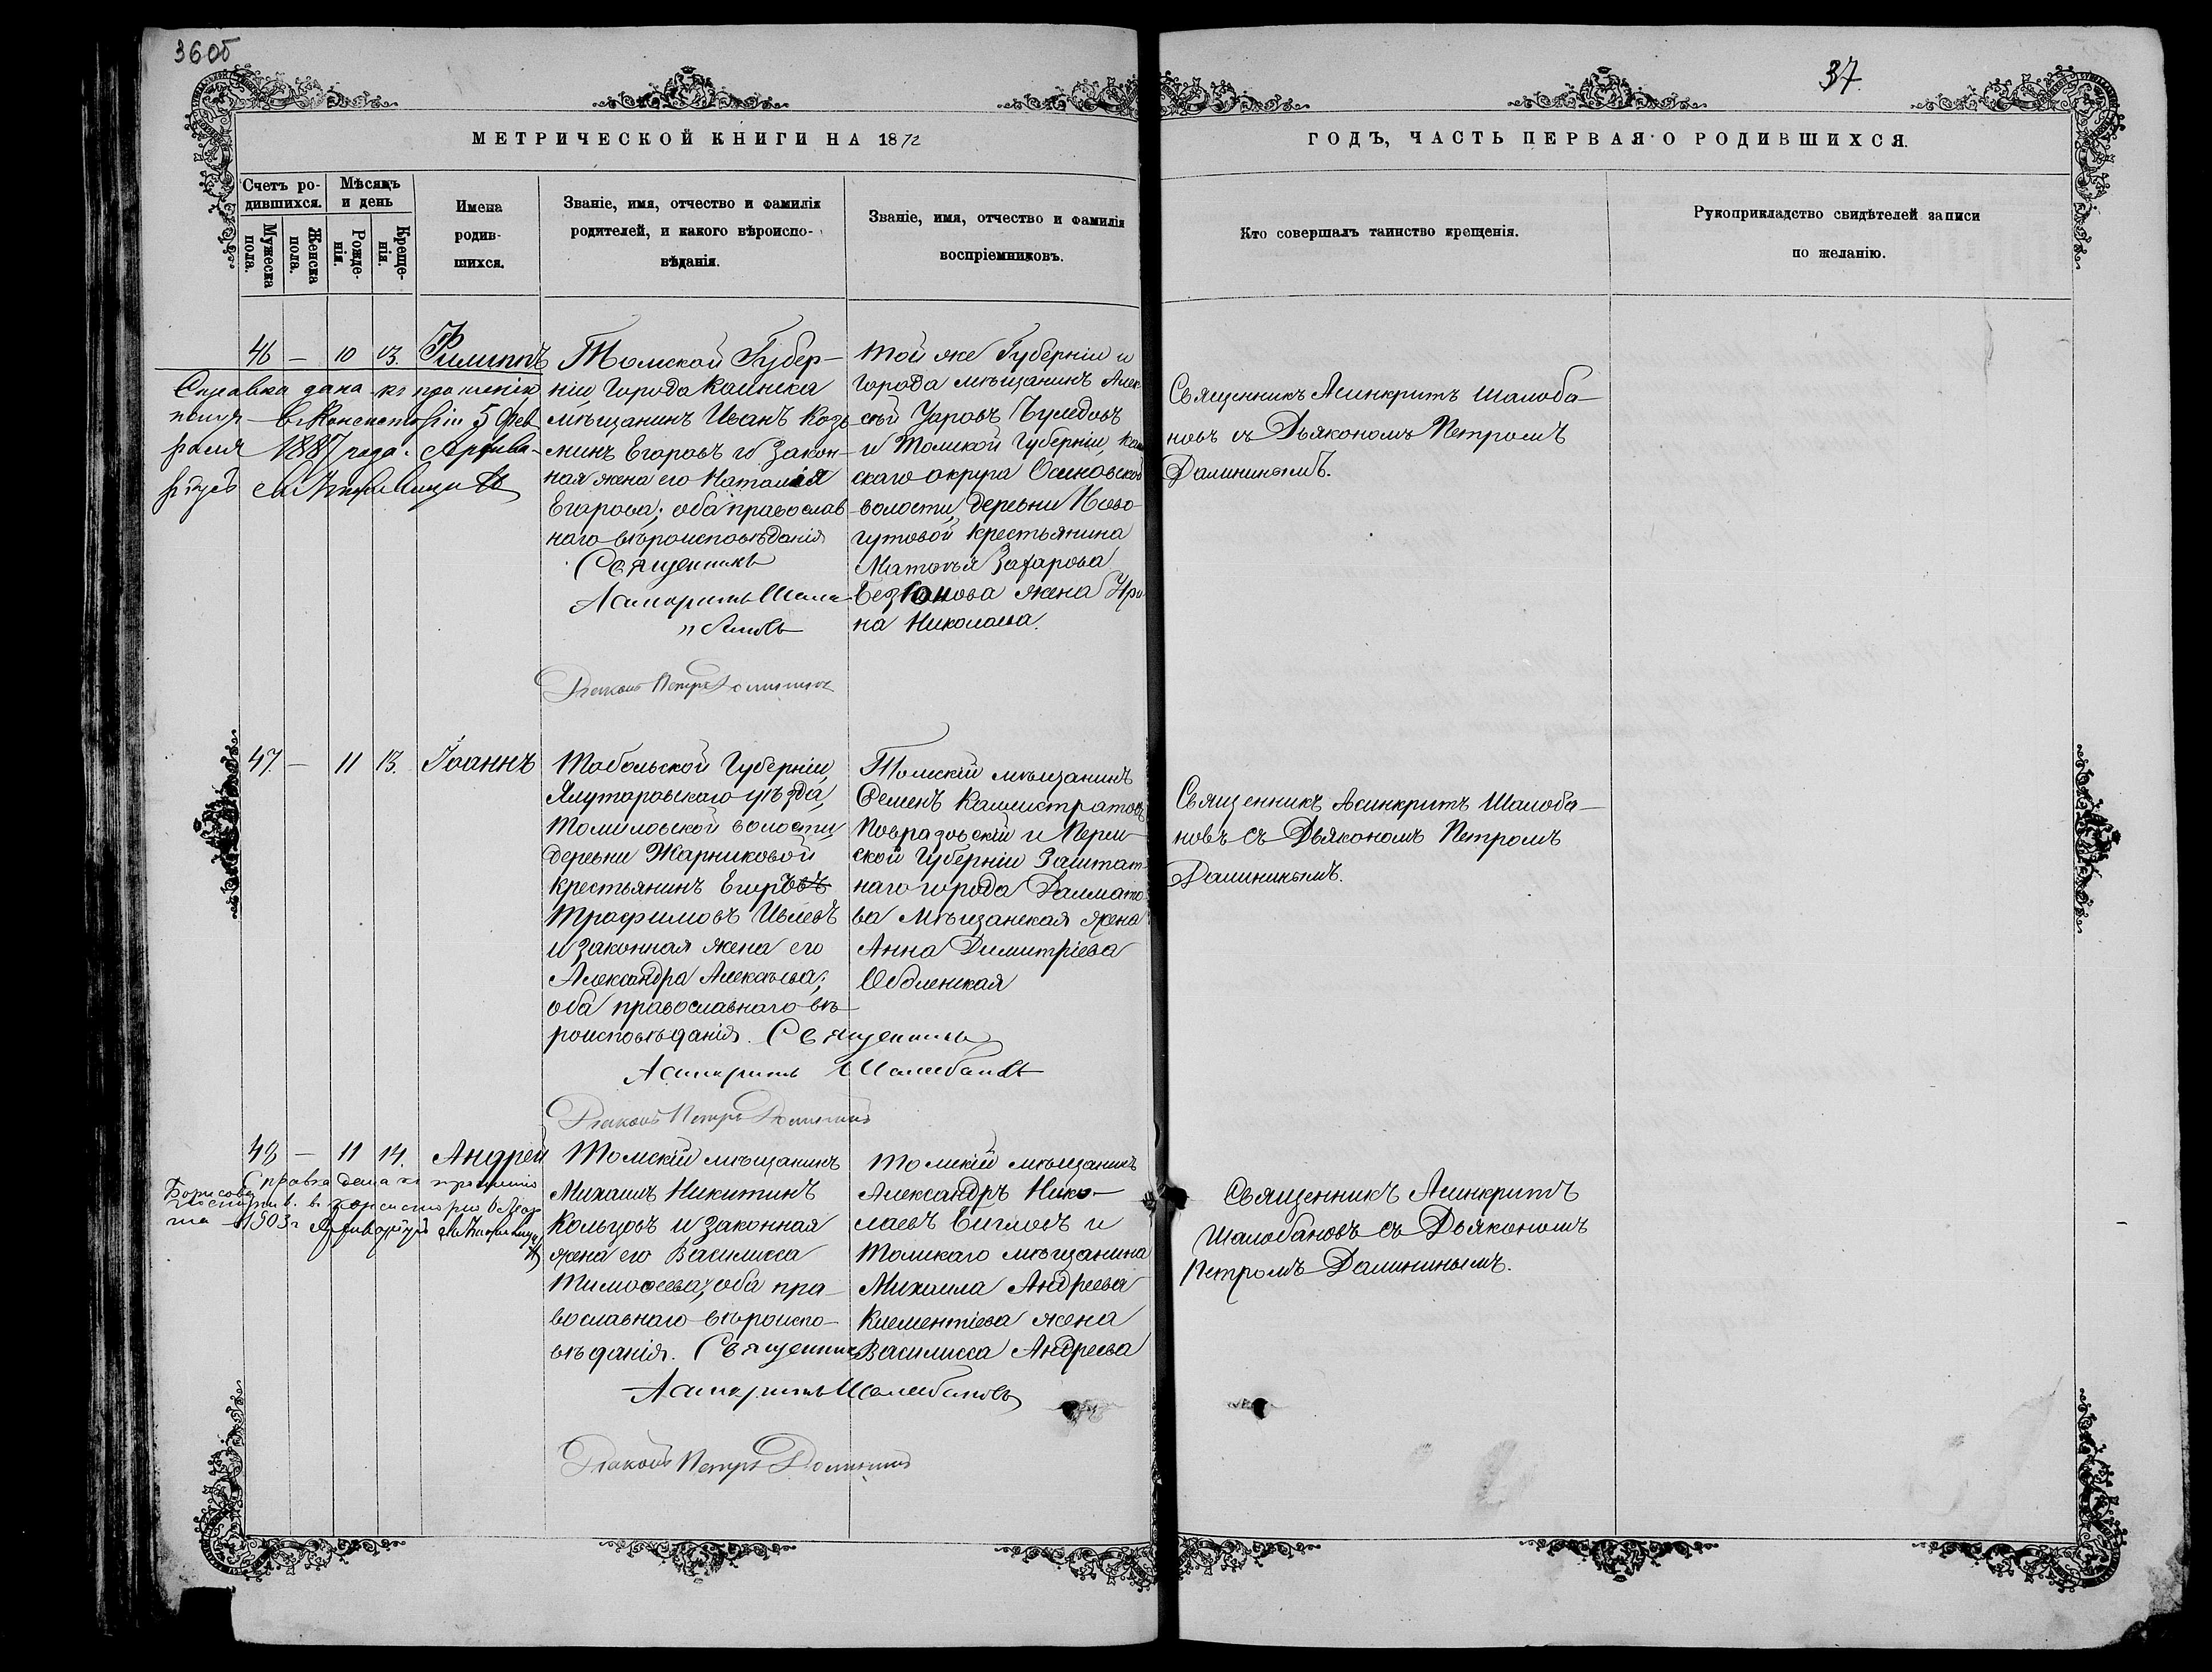 36 об
37.
МЕТРИЧЕСКОЙ КНИГИ НА 1872
ГОДЪ, ЧАСТЬ ПЕРВАЯ О РОДИВШИХСЯ.
Счетъ ро-
дившихся.
Мужеска пола.
Женска пола.
Мѣсяцъ
и день
Рожде-
нія.
Креще-
нія.
Имена
родив-
шихся.
Званіе, имя, отчество и фамилія
родителей, и какого вѣроиспо-
вѣданія.
Званіе, имя, отчество и фамилія
воспріемниковъ.
Кто совершалъ таинство крещенія.
Рукоприкладство свидѣтелей записи
по желанію.
46 — 10 13. Филиппъ
Справка дана къ прошенію
въ Консисторіи 5 Фев
раля 1887 года.
Томской Губер-
ніи, Города Каинска
мѣщанинъ Иванъ Козь
минъ Егоровъ и закон-
ная жена его Наталія
Егорова; оба православ
наго вѣроисповѣданія
Священникъ
Асинкритъ Шало
бановъ
Діаконъ Петръ Долининъ
Той же Губерніи и
города мѣщанинъ Алек-
сѣй Уаровъ
и Томской Губерніи, Каин
скаго округа Осиновской
волости, деревни Ново-
гутовой крестьянина
Матвѣя Захарова
жена Ири-
на Николаева.
Священникъ Асинкритъ Шалоба-
новъ съ Дьякономъ Петромъ
Далининымъ.
47. — 11 13. Іоаннъ
Тобольской Губерніи,
Ялуторовскаго уѣзда,
Томиловской волости
деревни Жарниковой
крестьянинъ Егоръ
Трафимовъ Ивлевъ
и законная жена его
Александра Алексѣева;
оба православнаго вѣ-
роисповѣданія. Священникъ
Асинкритъ Шалобановъ
Діаконъ Петръ Долининъ
Томскій мѣщанинъ
Семенъ Калистратовъ
и Перм-
ской Губерніи Заштат-
наго города Далмато-
ва мѣщанская жена
Анна Димитріева
Оболенская
Священникъ Асинкритъ Шалоба-
новъ съ Дьякономъ Петромъ
Далининымъ.
48 — 11 14. Андрей
Справка дана по прошенію
Борисова
въ консисторію 6 Мар
та 1903 г.
Томскій мѣщанинъ
Михаилъ Никитинъ
Кольцовъ и законная
жена его Василисса
Тимоѳеева; оба пра-
вославнаго вѣроиспо-
вѣданія. Священникъ
Асинкритъ Шалобановъ
Діаконъ Петръ Долининъ
Томскій мѣщанинъ
Александръ Нико-
лаевъ и
Томскаго мѣщанина
Михаила Андреева
Клементіева жена
Василисса Андреева
Священникъ Асинкритъ
Шалобановъ съ Дьякономъ
Петромъ Далининымъ.